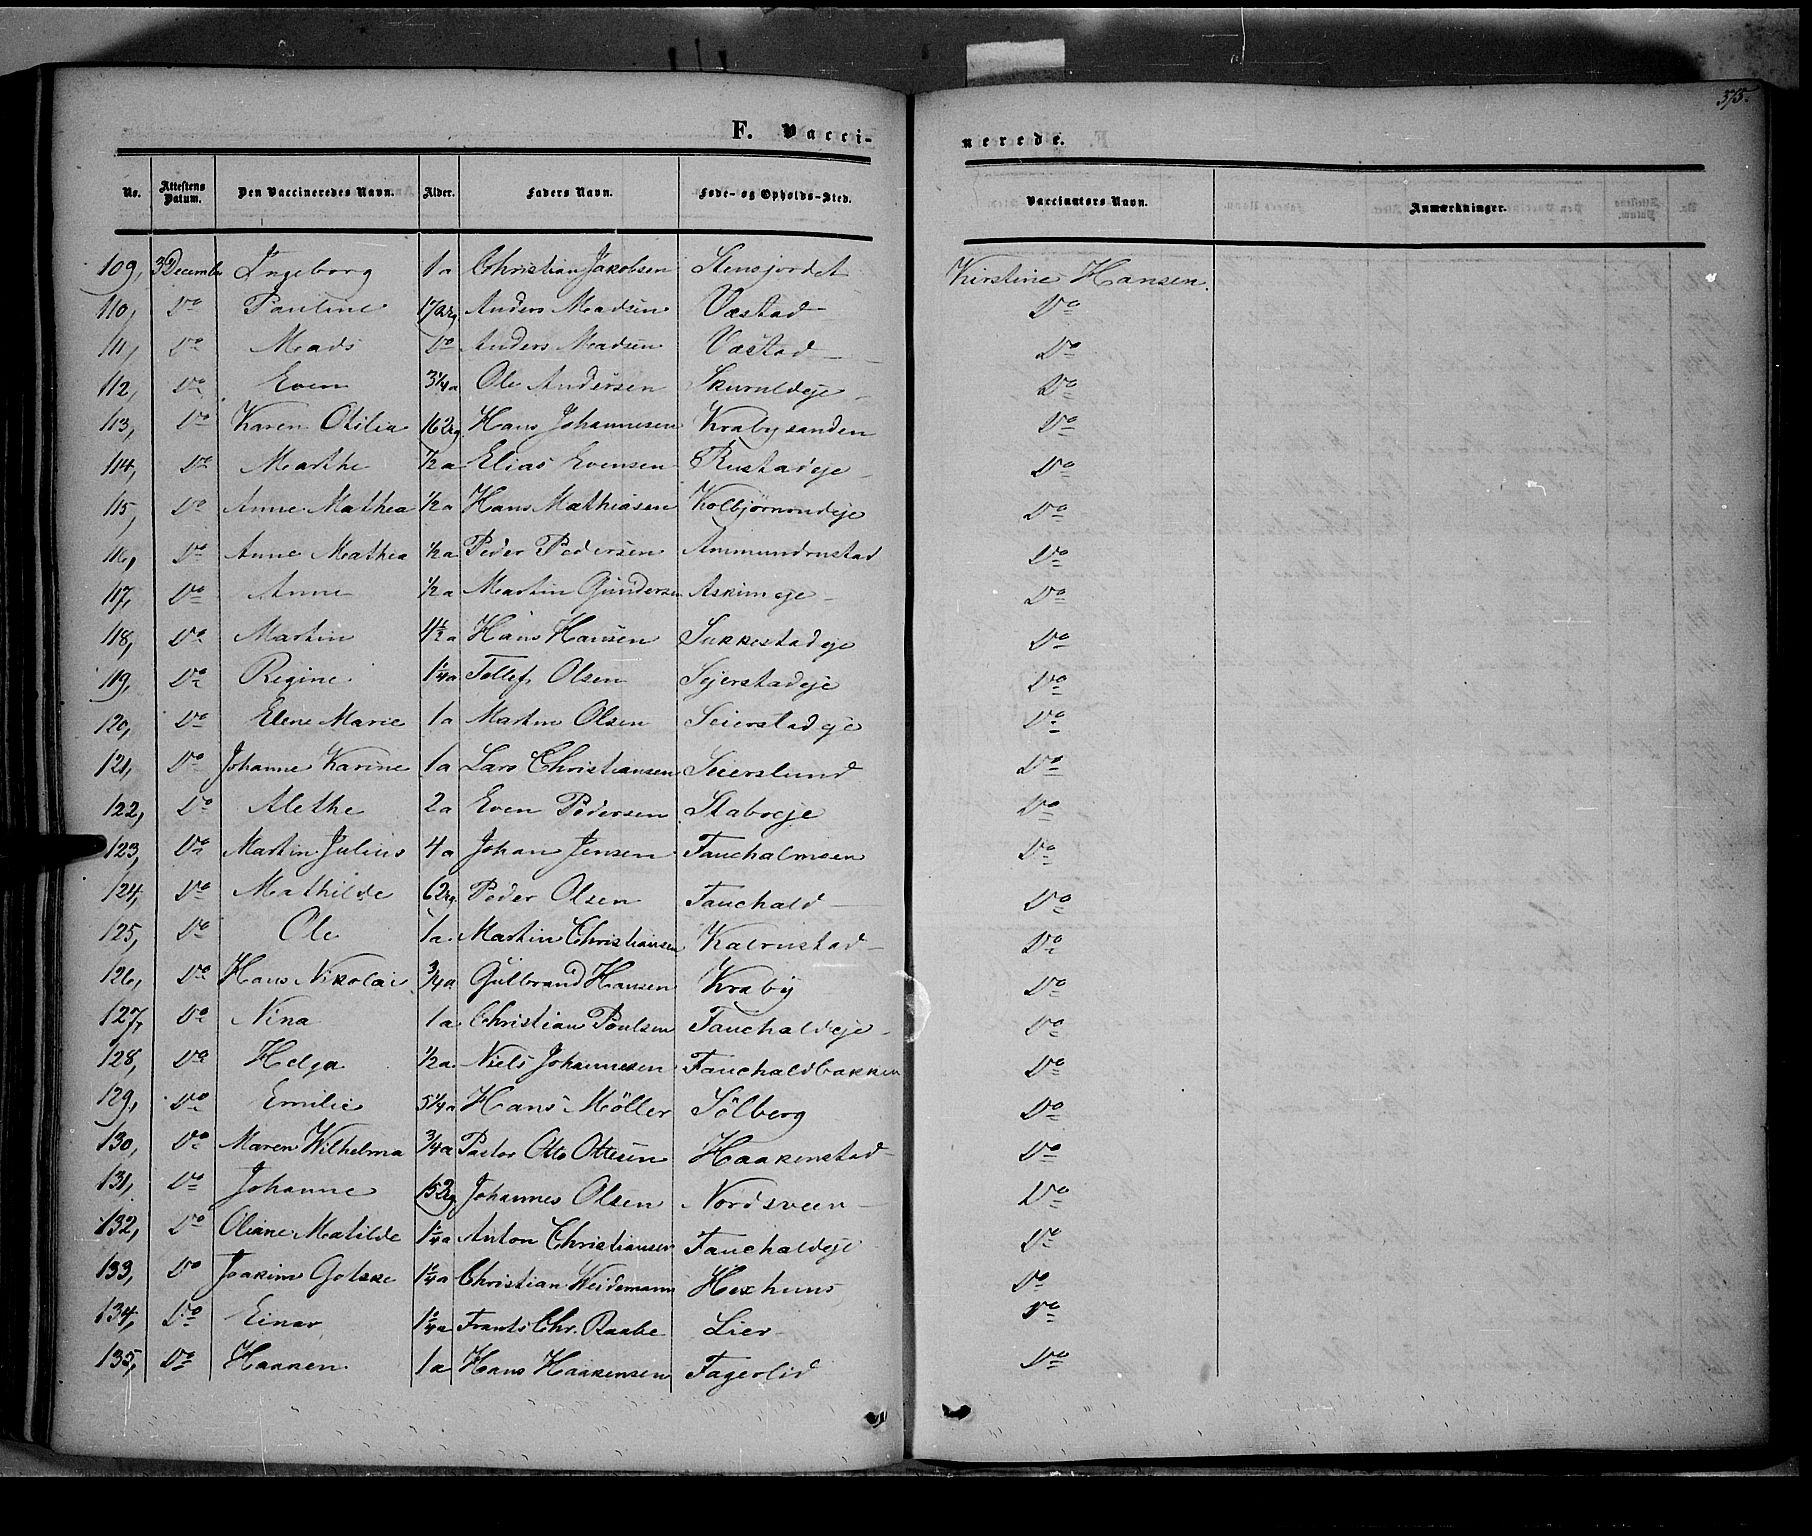 375.
F. Vacci-
nerede.
No. Attestens Datum. Den Vaccineredes Navn. Alder. Faders Navn. Føde- og Opholds-Sted. Vaccinators Navn. Anmærkninger.
109, 3 December Ingeborg 1a Christian Jakobsen Stensjordet Kirstine Hansen.
110, Do Pauline 17 Anders Madsen Væstad Do
111, Do Mads Do Anders Madsen Væstad Do
112, Do Even 3 1/4a Ole Andersen Do
113, Do Karen Otilia 16 Hans Johannesen Krabysanden Do
114, Do Marthe 1/2a Elias Evensen Rustadeje Do
115, Do Anne Mathea 1/2a Hans Mathiasen Kolbjørnrudeje Do
116, Do Anne Mathea 1/2a Peder Pedersen Ammundrustad Do
117, Do Anne 1/2a Martin Gundersen Askimeje Do
118, Do Martin 4 1/2a Hans Hansen Sukkestadeje Do
119, Do Regine 1 1/4a Tollef Olsen Sejerstadeje Do
120, Do Elene Marie 1a Martin Olsen Seierstadeje Do
121, Do Johanne Karine 1a Lars Christiansen Seierslund Do
122, Do Alethe 2a Even Pedersen Staboeje Do
123, Do Martin Julius 4a Johan Jensen Fauchalmoen Do
124, Do Mathilde 6 Peder Olsen Fauchald Do
125, Do Ole 1a Martin Christiansen Kalrustad Do
126, Do Hans Nikolai 3/4a Gulbrand Hansen Kraby Do
127, Do Nina 1a Christian Poulsen Fauchaldeje Do
128, Do Helga 1/2a Niels Johannesen Fauchaldbakken Do
129, Do Emilie 5 1/4a Hans Möller Sölberg Do
130, Do Maren Wilhelma 3/4a Pastor Otto Ottesen Haakenstad Do
131, Do Johanne 15 Johannes Olsen Nordsveen Do
132, Do Oliane Matilde 1 1/4a Anton Christiansen Fauchaldeje Do
133, Do Joakim Gotske 1 1/4a Christian Weidemann Hexhuus Do
134, Do Einar 1 1/4a Frants Chr. Raabe Lier Do
135, Do Haaken 1a Hans Haakensen Fagerlid Do